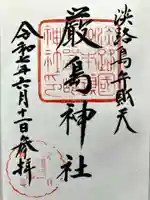 淡路島弁財天
厳島神社
令和七年六月十一日参拝